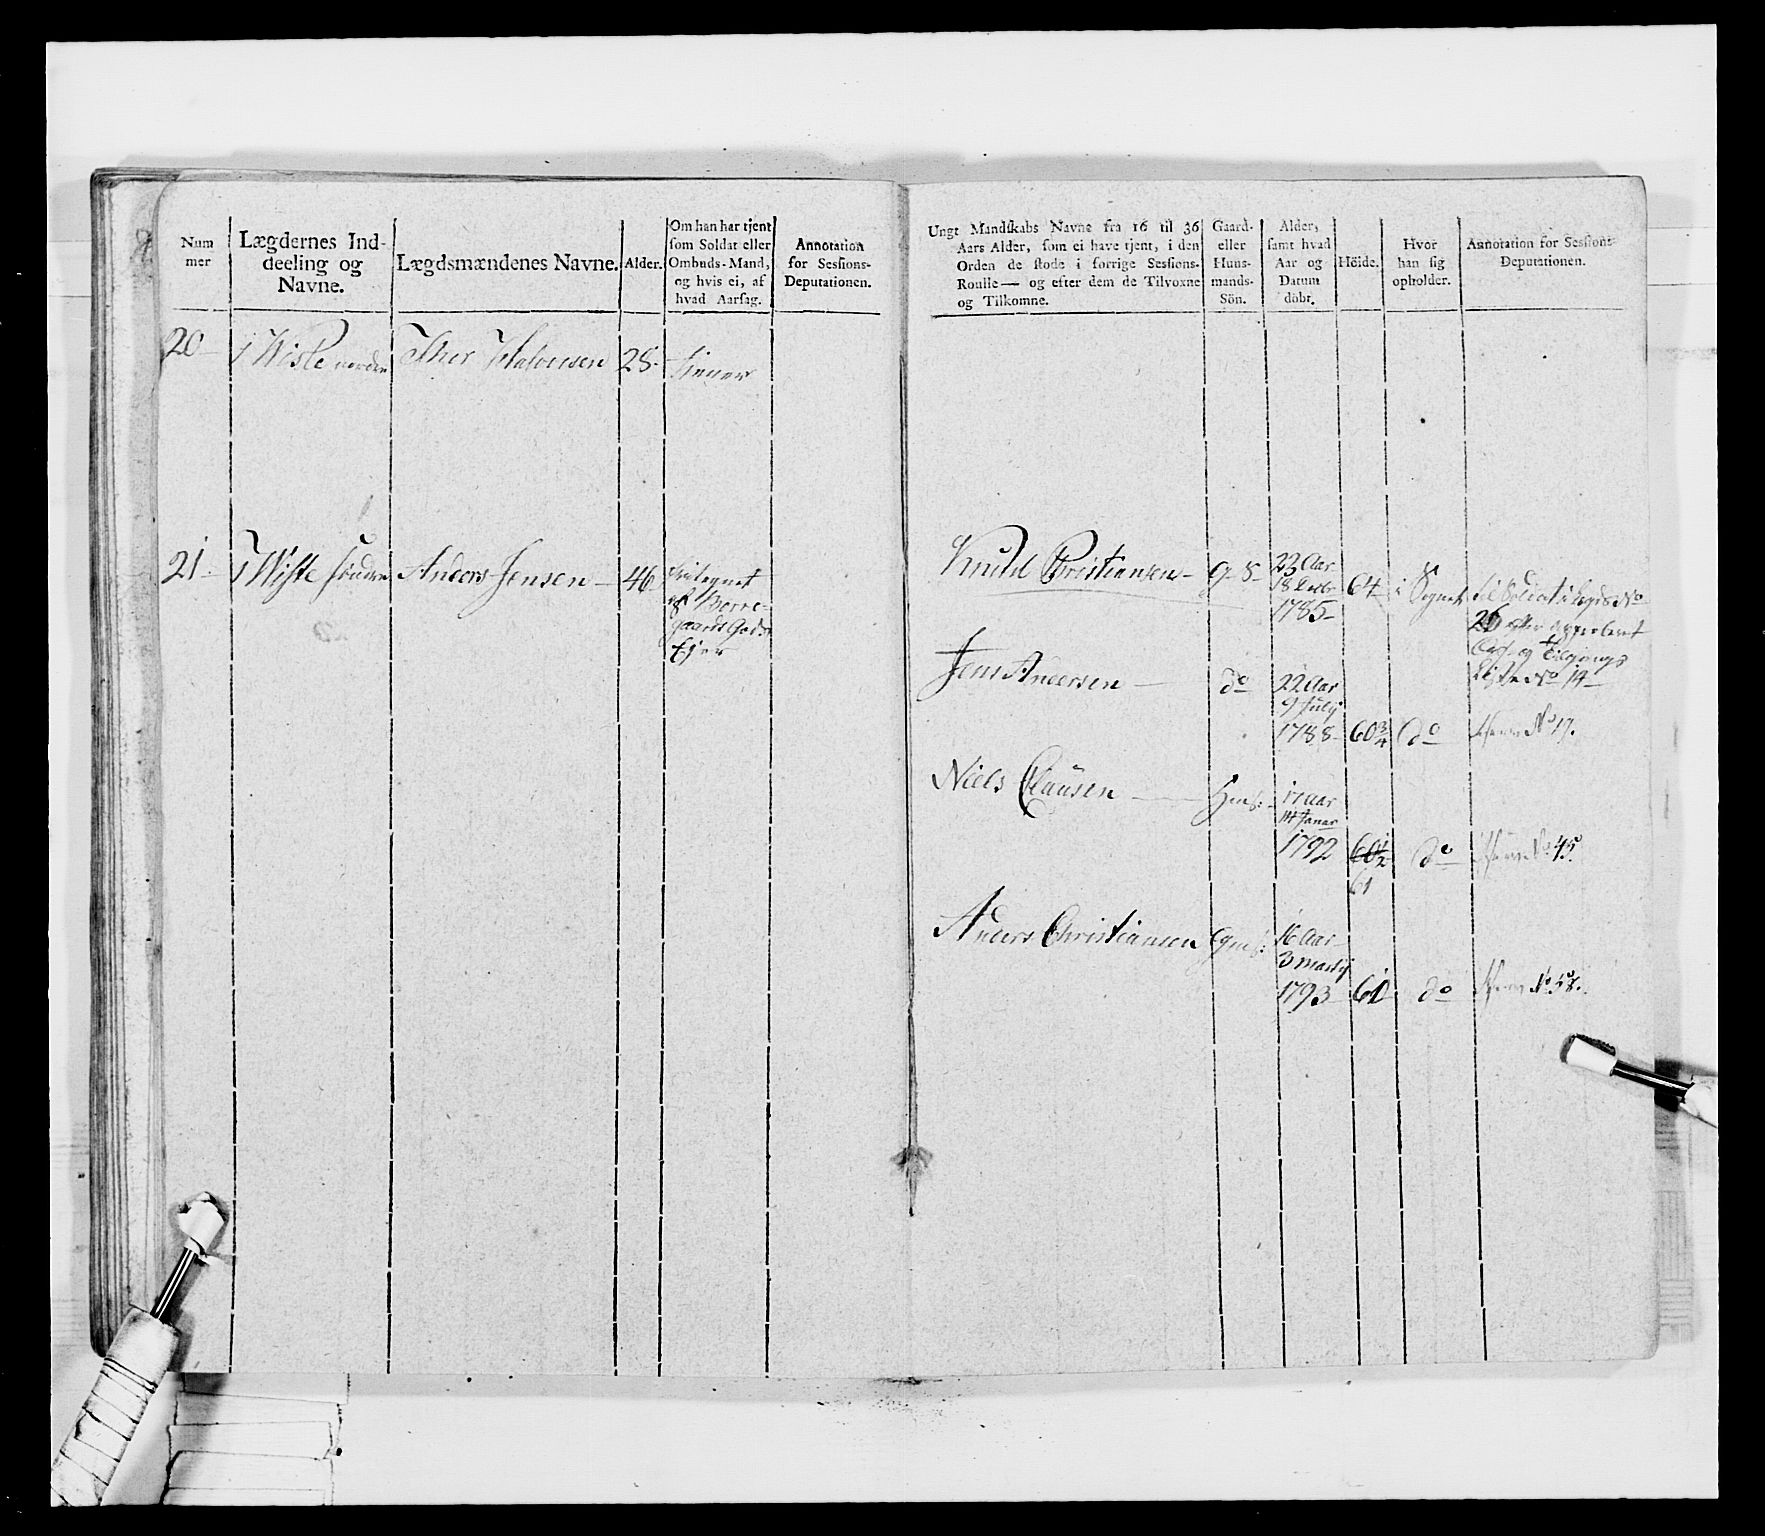 Num
mer
Lægdernes Ind-
deeling og
Navne.
Lægdsmændenes Navne.
Alder.
Om han har tjent
som Soldat eller
Ombuds-Mand,
og hvis ei, af
hvad Aarsag.
Annotation
for Sessions-
Deputationen.
20
21
Halvorsen
28
tiener
Anders Jensen
46
Ejer
Ungt Mandskabs Navne fra 16 til 36
Aars Alder, som ei have tjent, i den
Orden de stode i forrige Sessions-
Roulle— og efter dem de Tilvoxne
og Tilkomne.
Gaard-
eller
Huus-
mands-
Sön.
Alder,
samt hvad
Aar og
Datum
döbt.
Höide.
Hvor
han sig
opholder.
Annotation for Sessions-
Deputationen.
Knud Christiansen
G. S
23 Aar
1785
64
i Sognet
til Soldat i Legds No
26 efter approberet
Cass. og Tilgangs
Liste No 14
Jens Andersen
do
22 Aar
9 Julij
1788
60 3/4
do
No 17.
Niels Clausen
17 Aar
14 Januar
1792
60 1/2
61
do
No 45
Anders Christiansen
16 Aar
3 Martij
1793
61
do
No 58.